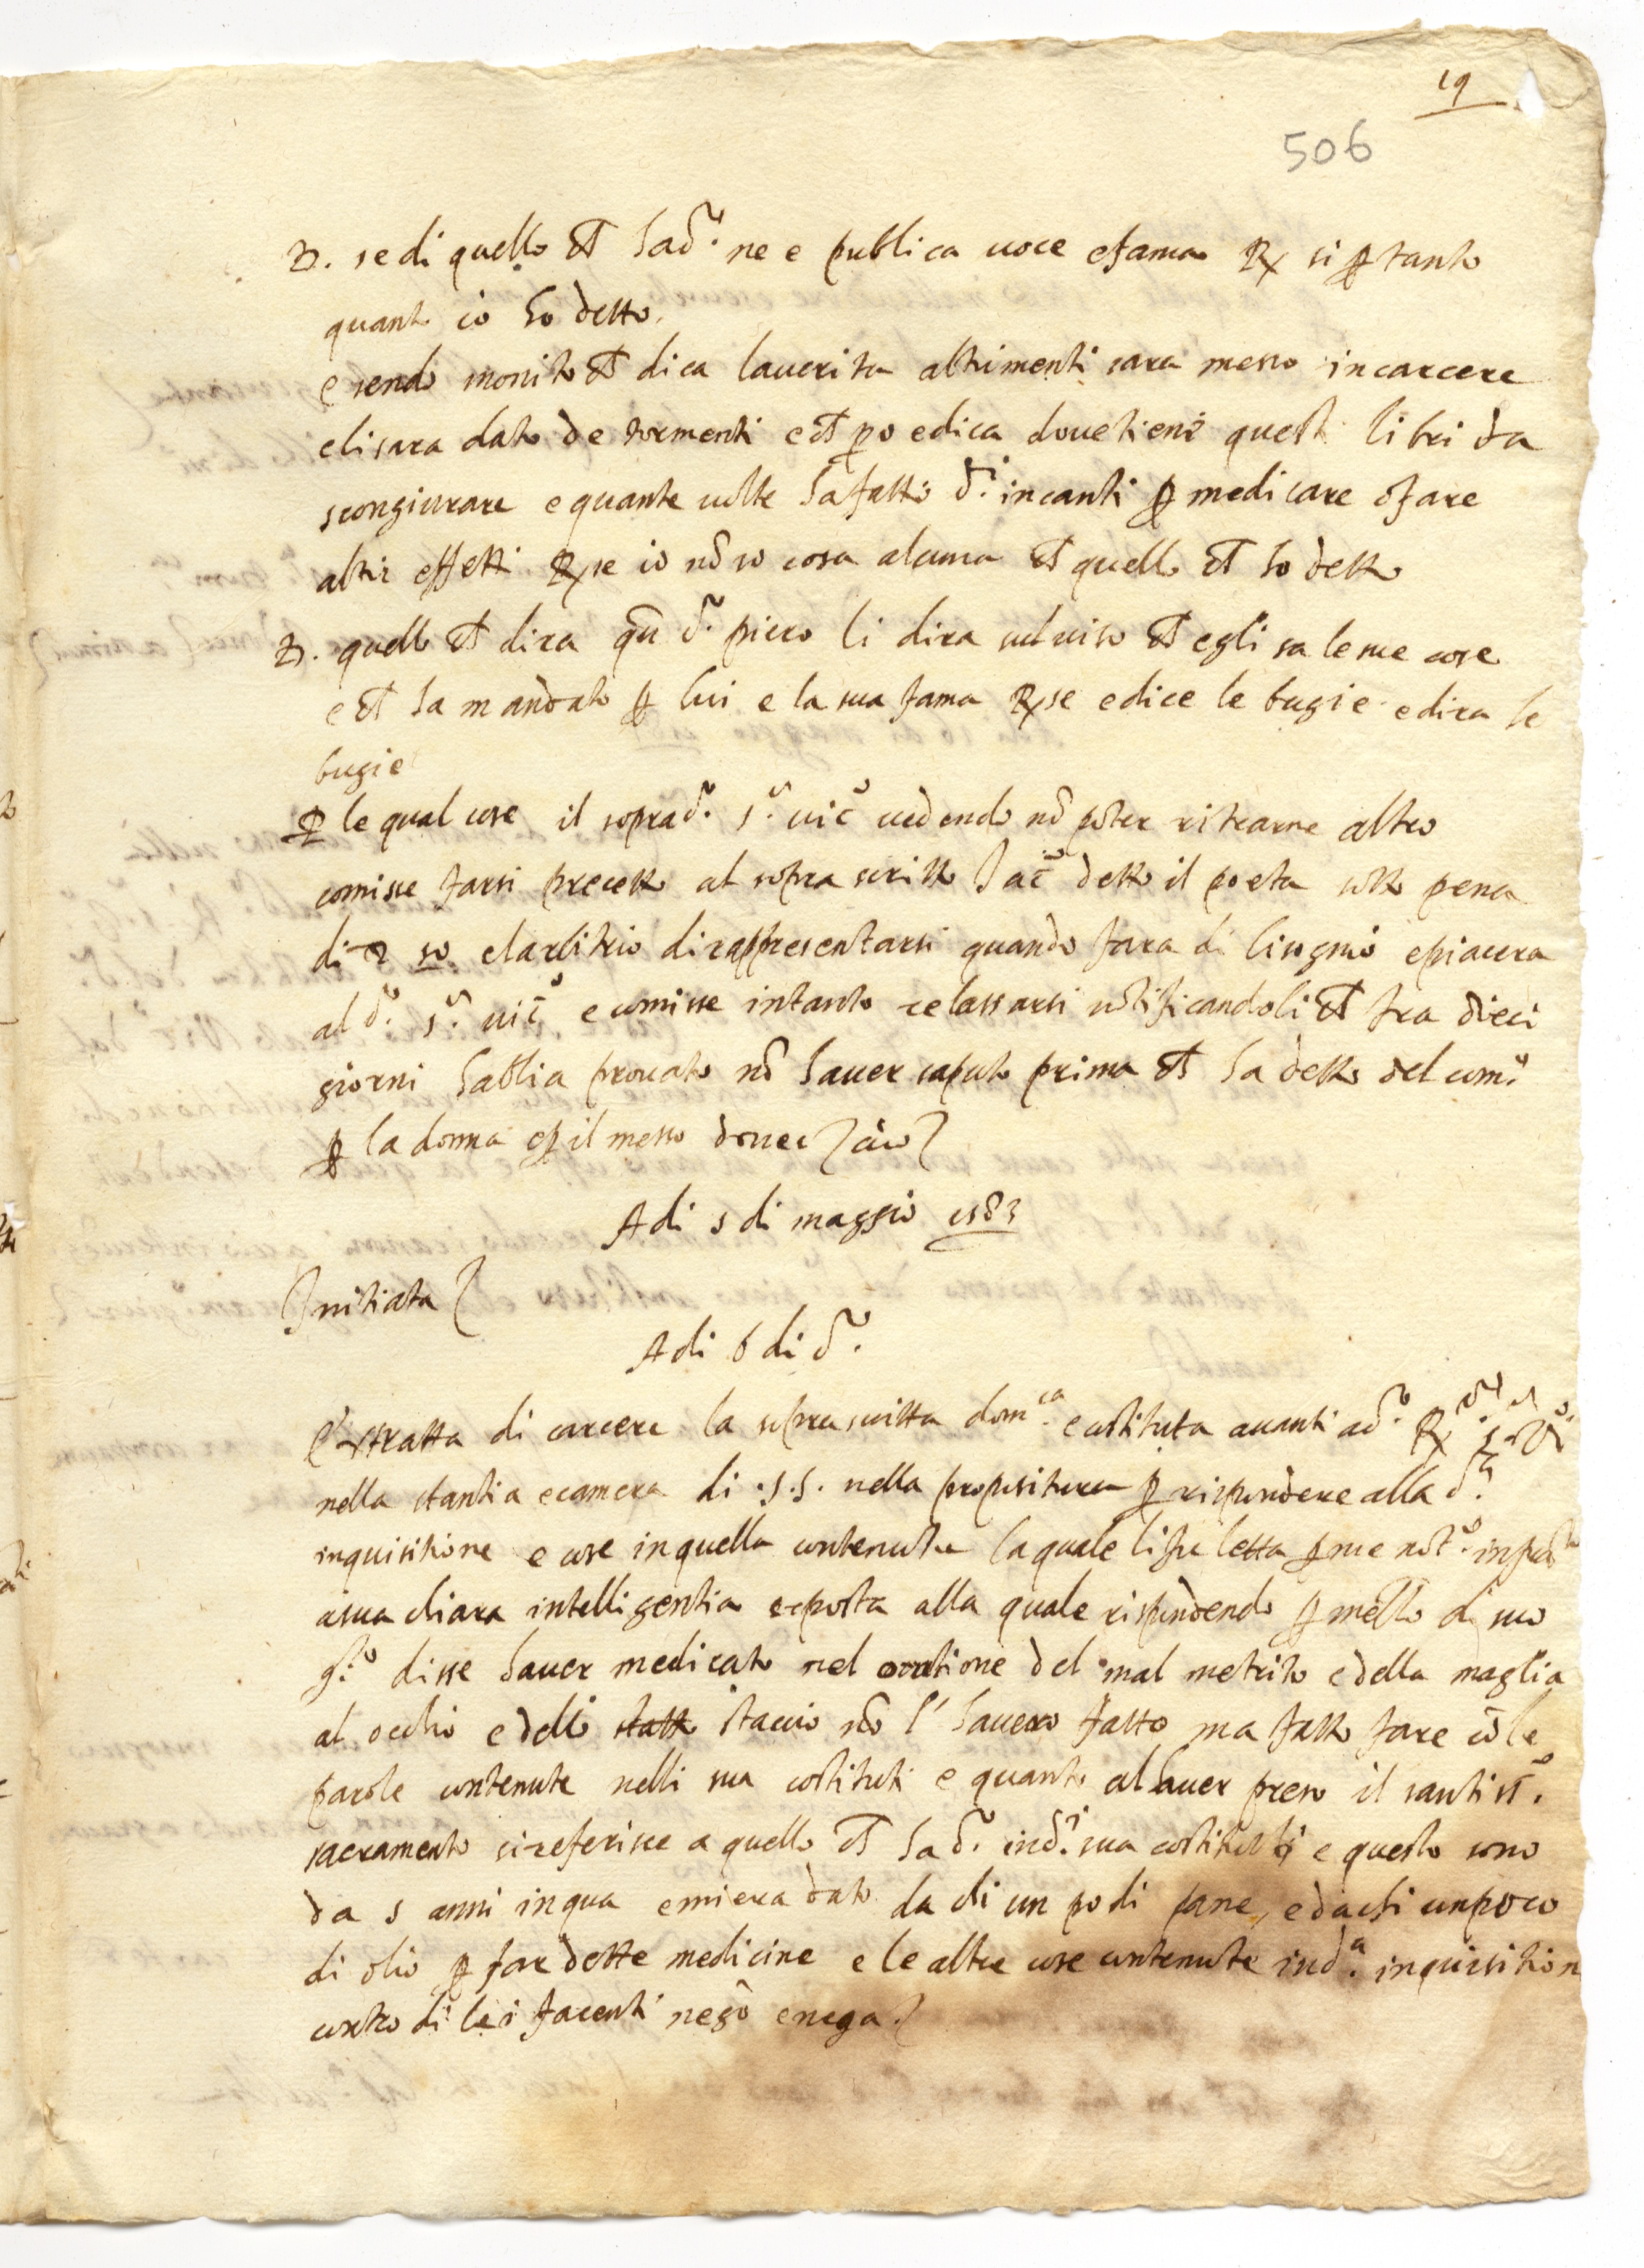 19
506
D. se di quello che ha d.o ne e publica uoce e fama Rx si p tanto
quanto io ho detto.
esendo monito che dica la uerita altrimenti sara messo in carcere
e li sara dato de tormenti e che po e dica doue tiene questi libri da
scongiurare e quante uolte ha fatto d.i incanti p medicare o fare
altri effetti Rx se io nō so cosa alcuna che quello che ho detto
D. quello che dira qñ d.o piero li dira sul uiso che egli sa le sue cose
e che ha mandato p lui e la sua fama Rx se e dice le bugie e dira le
bugie
p le qual cose il soprad.o s.r uic.o uedendo nō poter ritrarne altro
comisse farsi precetto al soprascritto Jac.o detto il poeta sotto pena
di 50 e larbitrio di rappresentarsi quando fara di bisogno e piacera
al d.o s.r uic.o e comisse intanto relassarsi notificandoli che fra dieci
giorni habbia prouato nō hauer saputo prima che ha detto del com.e
p la donna e p il messo donec
Adi 5 di maggio 1583
Initiata
Adi 6 di d.o
Extratta di carcere la soprascritta dom.ca e costituta auanti a d.o
nella stantia e camera di .s.s. nella propositura p rispondere alla d.a
inquisitione e cose in quella contenute la quale li fu letta p me not.o
a sua chiara intelligentia exposta alla quale rispondendo p mezzo di suo
g.to disse hauer medicato nel oratione del mal metrito e della maglia
al occhio e dello statto staccio nō l' hauero fatto ma fatto fare cō le
parole contenute nelli sua costituti e quanto al hauer preso il santiss.o
sacramento si referisce a quello che ha d.o in d.i sua costituti e questo sono
da 5 anni in qua e mi era dato da chi un po di pane, e da chi un poco
di olio p far dette medicine e le altre cose contenute in d.a inquisition
contro di lei facenti nego e nega.